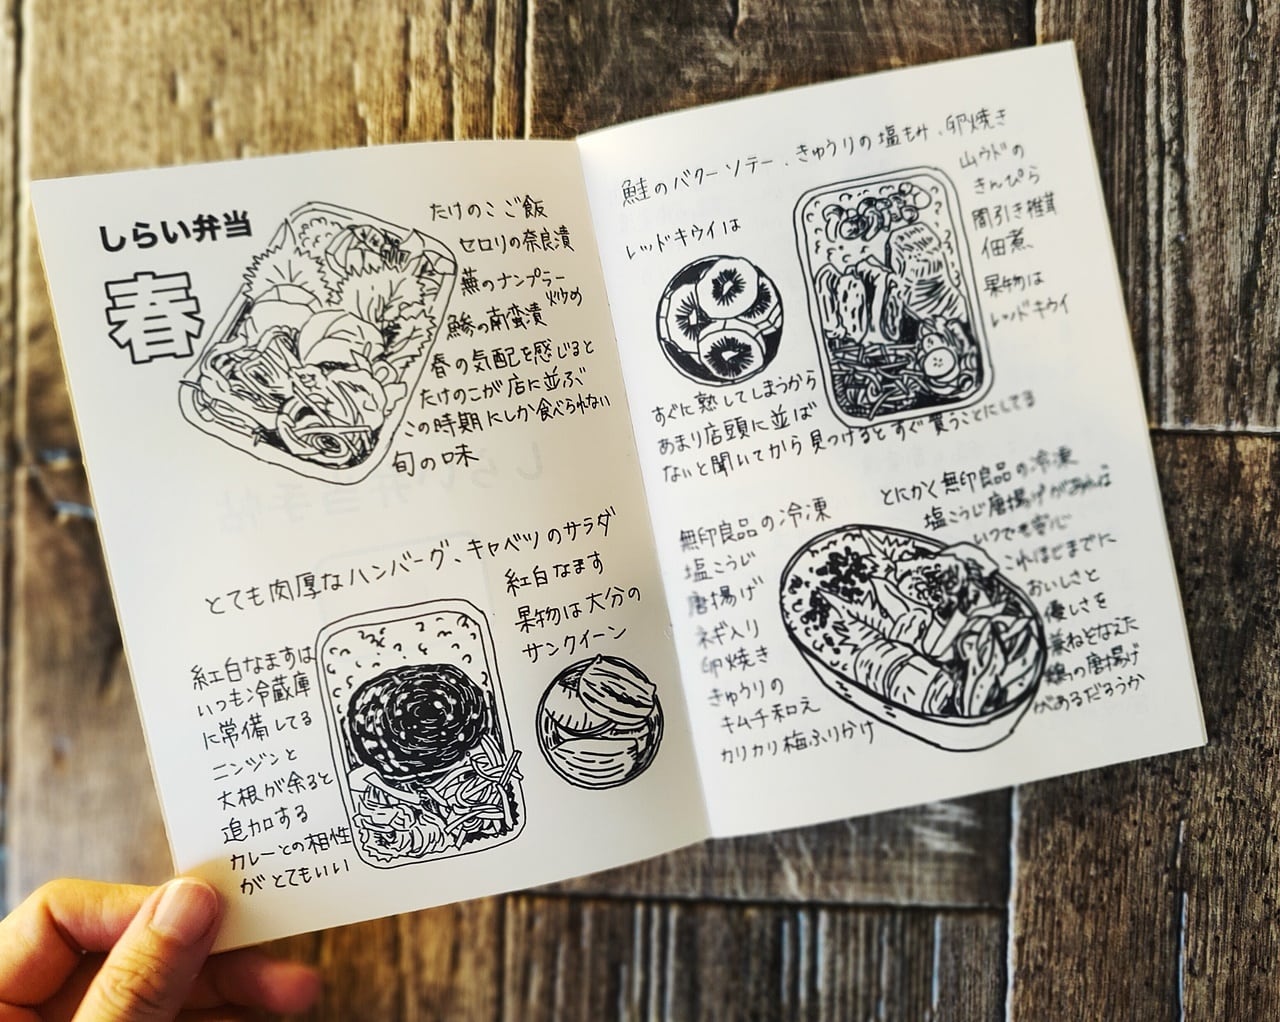 しらい弁当
春
たけのこご飯
セロリの奈良漬
蕪のナンプラー
炒め
鯵の南蛮漬
春の気配を感じると
たけのこが店に並ぶ
この時期にしか食べられない
旬の味
とても肉厚なハンバーグ、キャベツのサラダ
紅白なます
果物は大分の
サンクイーン
紅白なますは
いつも冷蔵庫
に常備してる
ニンジンと
大根が余ると
追加する
カレーとの相性
がとてもいい
鮭のバターソテー、きゅうりの塩もみ、卵焼き
山ウドの
きんぴら
間引き椎茸
佃煮
果物は
レッドキウイ
レッドキウイは
すぐに熟してしまうから
あまり店頭に並ば
ないと聞いてから見つけるとすぐ買うことにしてる
無印良品の冷凍
塩こうじ
唐揚げ
ネギ入り
卵焼き
きゅうりの
キムチ和え
カリカリ梅ふりかけ
とにかく無印良品の冷凍
塩こうじ唐揚げがあれば
いつでも安心
これほどまでに
おいしさと
優しさを
兼ねそなえた
鶏の唐揚げ
があるだろうか